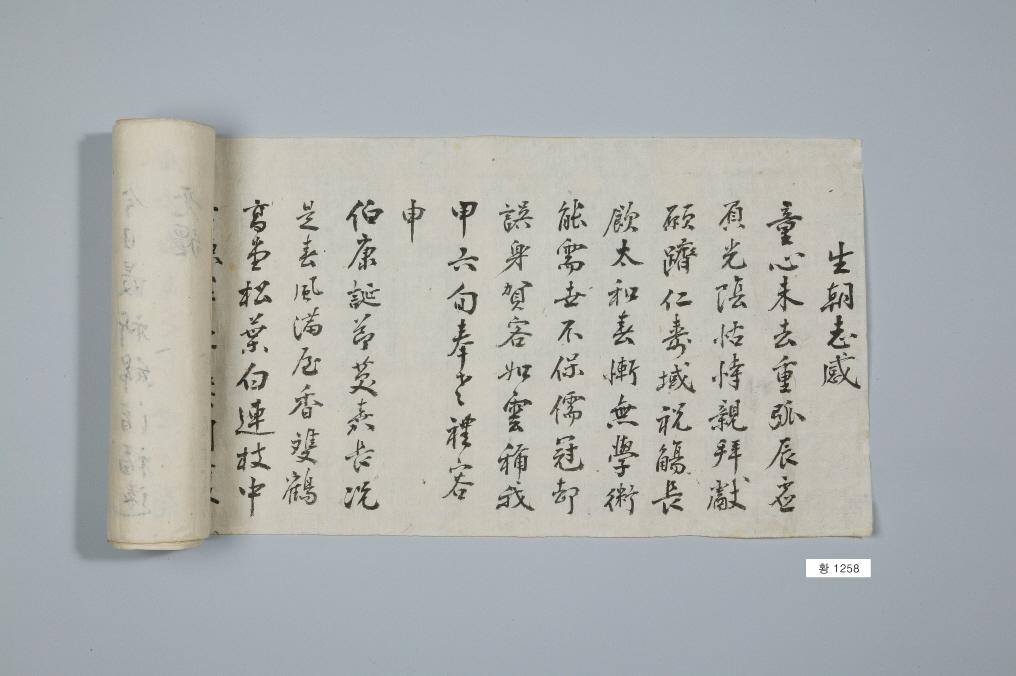 生朝志感
童心未去重弧辰
負光陰怙恃親拜獻
願躋仁壽域祝觴長
飮太和春慚無學術
能需世不保儒冠却
誤身賀客如雲稱我
甲六旬奉老禮容
申
伯康誕節莫奏長
是春風滿座香雙鶴
高堂松葉白連枝中
황 1258